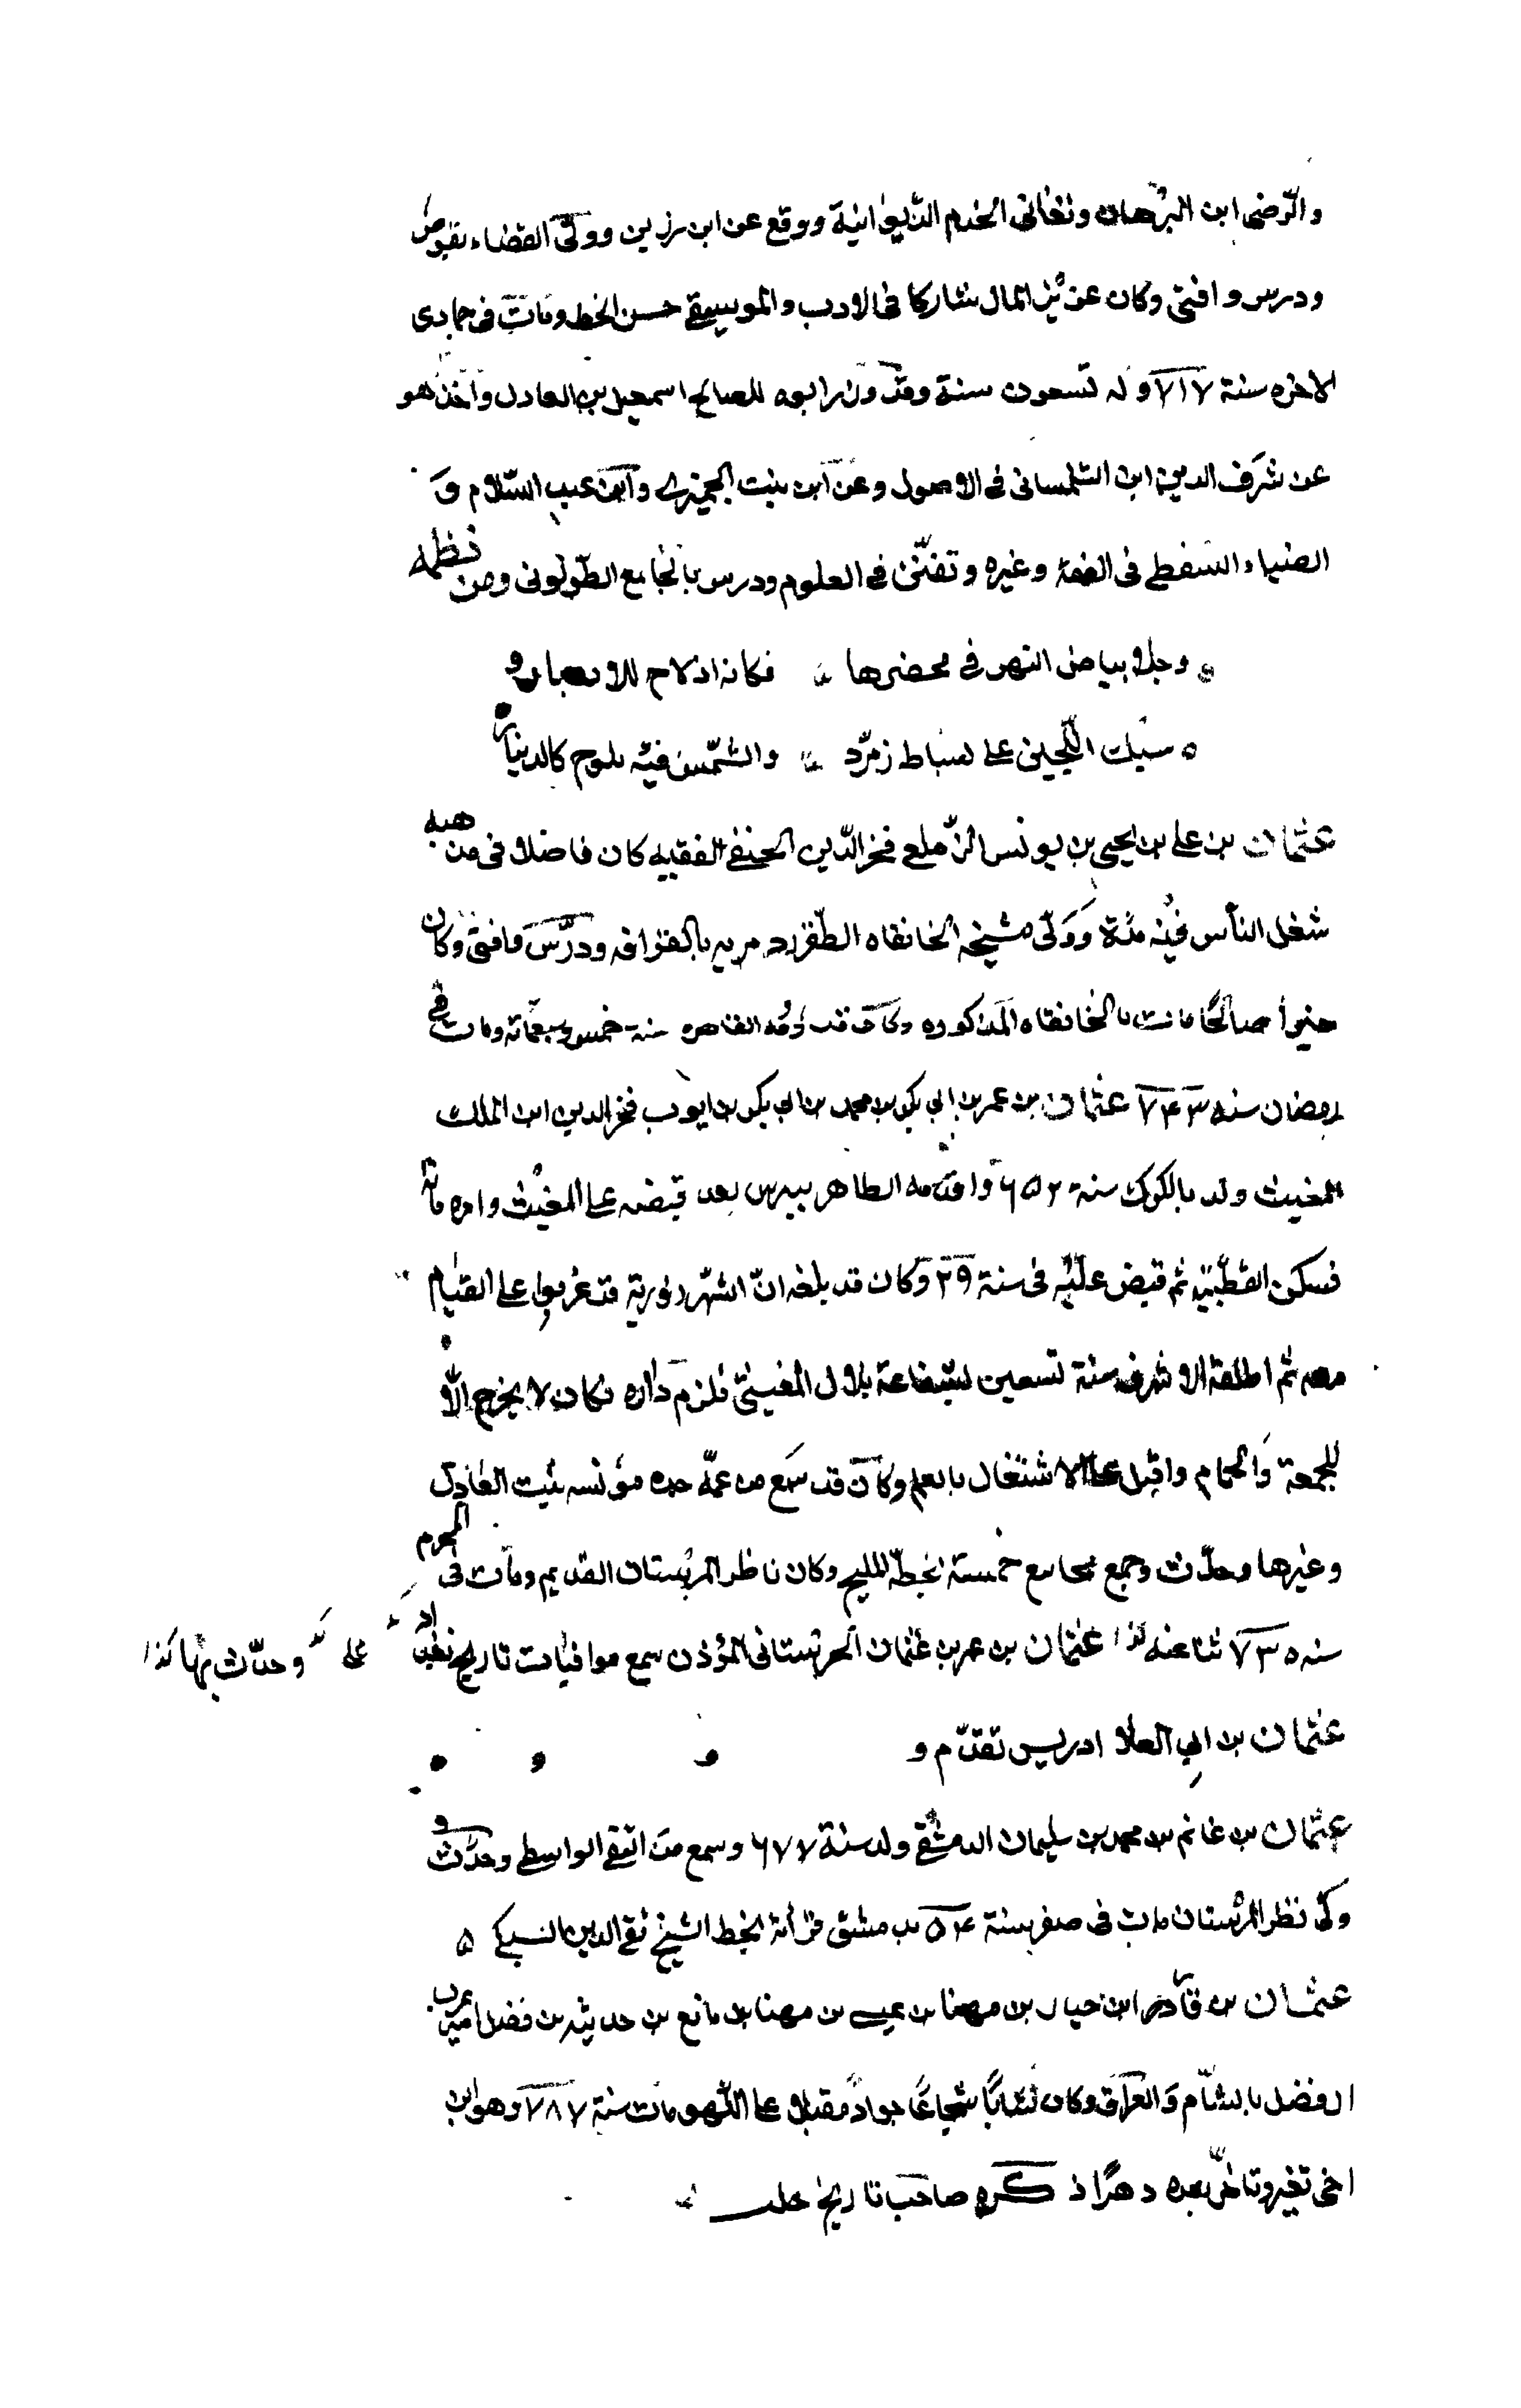 والرضى ابن البرهان وتعانى الخدم الديوانية ووقع عن ابن رزين وولى القضاء بقوص
ودرس وافتى وكان عزيز المال مشاركا فى الادب والموسيقى حسن الخط ومات فى جمادى
الاخره سنة ٧١٧ وله تسعون سنة وقد وزر ابوه للصالح اسمعيل بن العادل واخذ هو
عن شرف الدين ابن التلمسانى فى الاصول وعن ابن بنت الجميزى وابن عبد السلام و
الضياء السفطى فى الفقه وغيره وتفنن فى العلوم ودرس بالجامع الطولونى ومن نظمه
وجلا بياض النهر فى مخضرها فكانه اذ لاح للابصار
سبك اللجين على بساط زمرد والشمس فيه تلوح كالدينار
عثمان بن على بن يحيى بن يونس الزيلعى فخر الدين الحنفى الفقيه كان فاضلا فى مذهبه
شغل الناس فيه مدة وولى مشيخه الخانقاه الطقزدمريه بالقرافه ودرس وافتى وكان
خيرا صالحا مات بالخانقاه المذكوره وكان قدم القاهره سنة خمس وسبعمائة ومات فى
رمضان سنه ٧٤٣ عثمان بن عمر بن ابى بكر بن محمد بن ابى بكر بن ايوب فخر الدين ابن الملك
المغيث ولد بالكرك سنة ٦٥٢ واقدمه الظاهر بيبرس بعد قبضه على المغيث وامره مائة
فسكن القطبية ثم قبض عليه فى سنة ٦٩ وكان قد بلغه ان الشهرزورية قد عزموا على القيام
معه ثم اطلقه الاشرف سنة تسعين بشفاعة بلال المغيثى فلزم داره فكان لا يخرج الا
للجمعة والحمام واقبل على الاشتغال بالعلم وكان قد سمع من عمة جده مؤنسه بنت العادل
وغيرها وحدث وجمع مجاميع خمسة بخطه المليح وكان ناظر المرستان القديم ومات فى المحرم
سنه ٧٣٥ ثنا عنه عثمان بن عمر بن عثمان الحرستانى المؤذن سمع موافيات تاريخ بغداد على وحدث بها كذا
عثمان بن ابى العلا ادريس تقدم
عثمان بن غانم بن محمد بن سليمان الدمشقى ولد سنة ٦٧٧ وسمع من التقى الواسطى وحدث
وولى نظر المرستان مات فى صفر سنة ٥٤ بدمشق قرأته بخط الشيخ تقى الدين السبكى
عثمان بن قاره ابن حيار بن مهنا بن عيسى بن مهنا بن مانع بن حديثه بن فضل امير عرب
ال فضل بالشام والعراق وكان شابا شجاعا جوادا مقبلا على اللهو مات سنة ٧٨٧ وهو ابن
اخى نعير وتاخر بعده دهرا ذكره صاحب تاريخ حلب